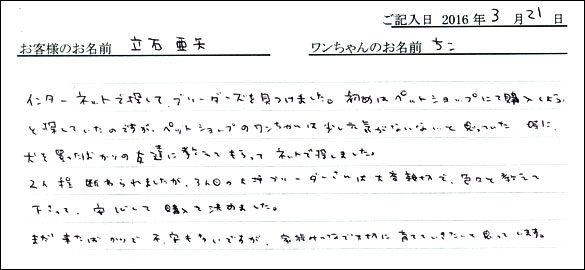 ご記入日 2016年 3月 21日
お客様のお名前 立石 亜矢 ワンちゃんのお名前 ちこ
インターネットで探して、ブリーダーズを見つけました。初めはペットショップにて購入しよう
と探していたのですが、ペットショップのワンちゃんは少し元気がないなと思っていた 時に、
犬を買ったばかりの友達に教えてもらって ネットで探しました。
2人程 断わられましたが、3人目の ブリーダーさんは大変親切で、色々と教えて
下さって、安心して 購入を決めました。
まだ来たばかりで 不安も多いですが、家族みんなで大切に 育てていきたいと思っています。